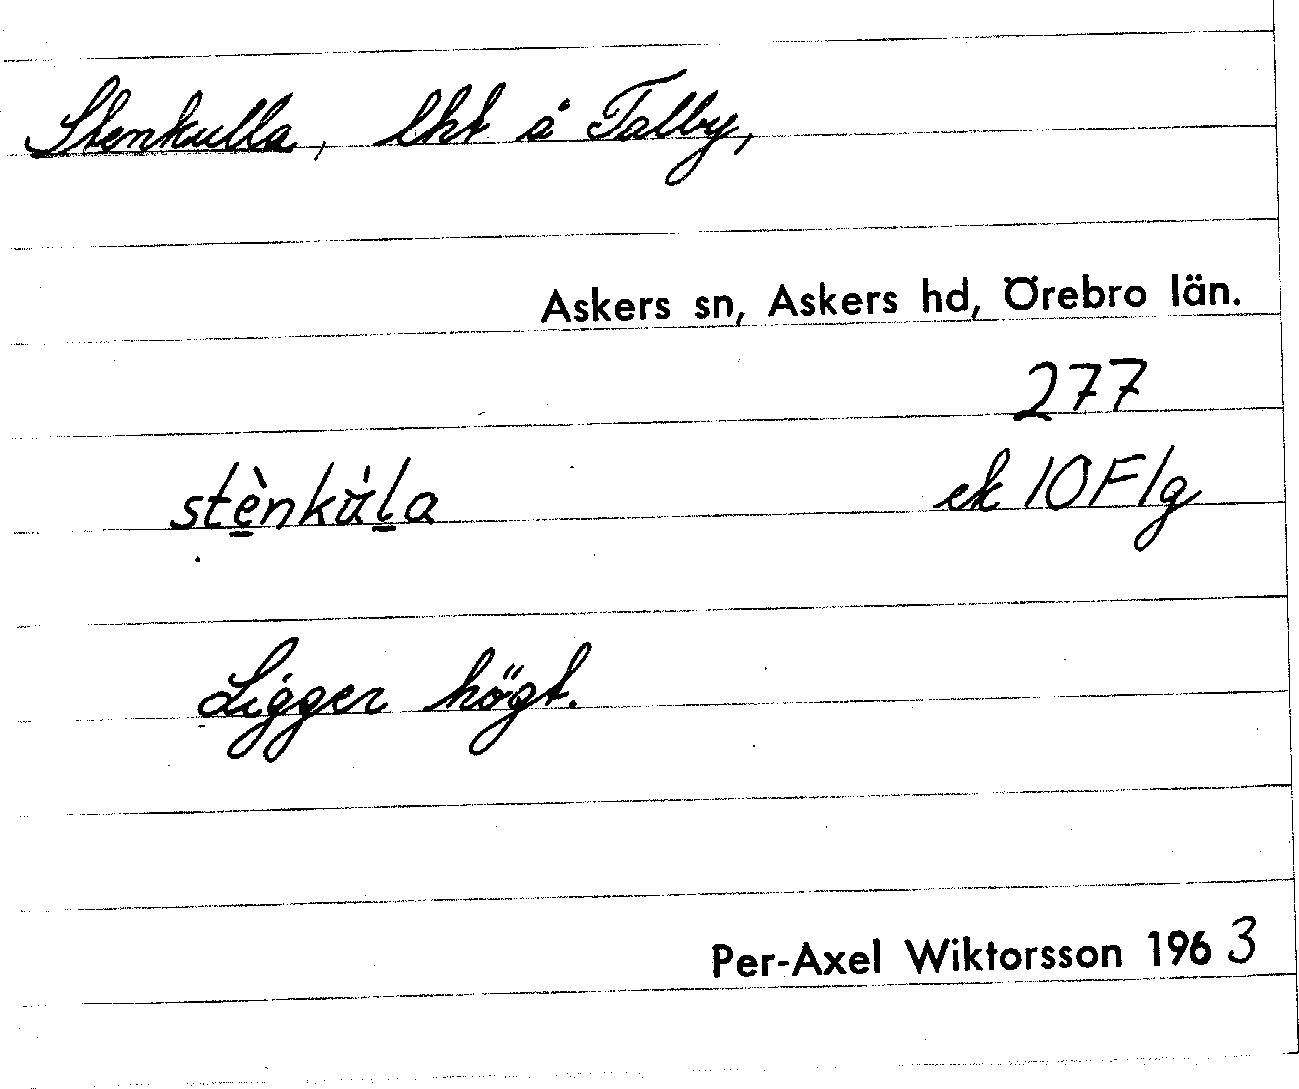 Stenkulla, lht å Talby,
Askers sn, Askers hd, Örebro län.
277
stènkùla ek 10F1g
Ligger högt.
Per-Axel Wiktorsson 1963